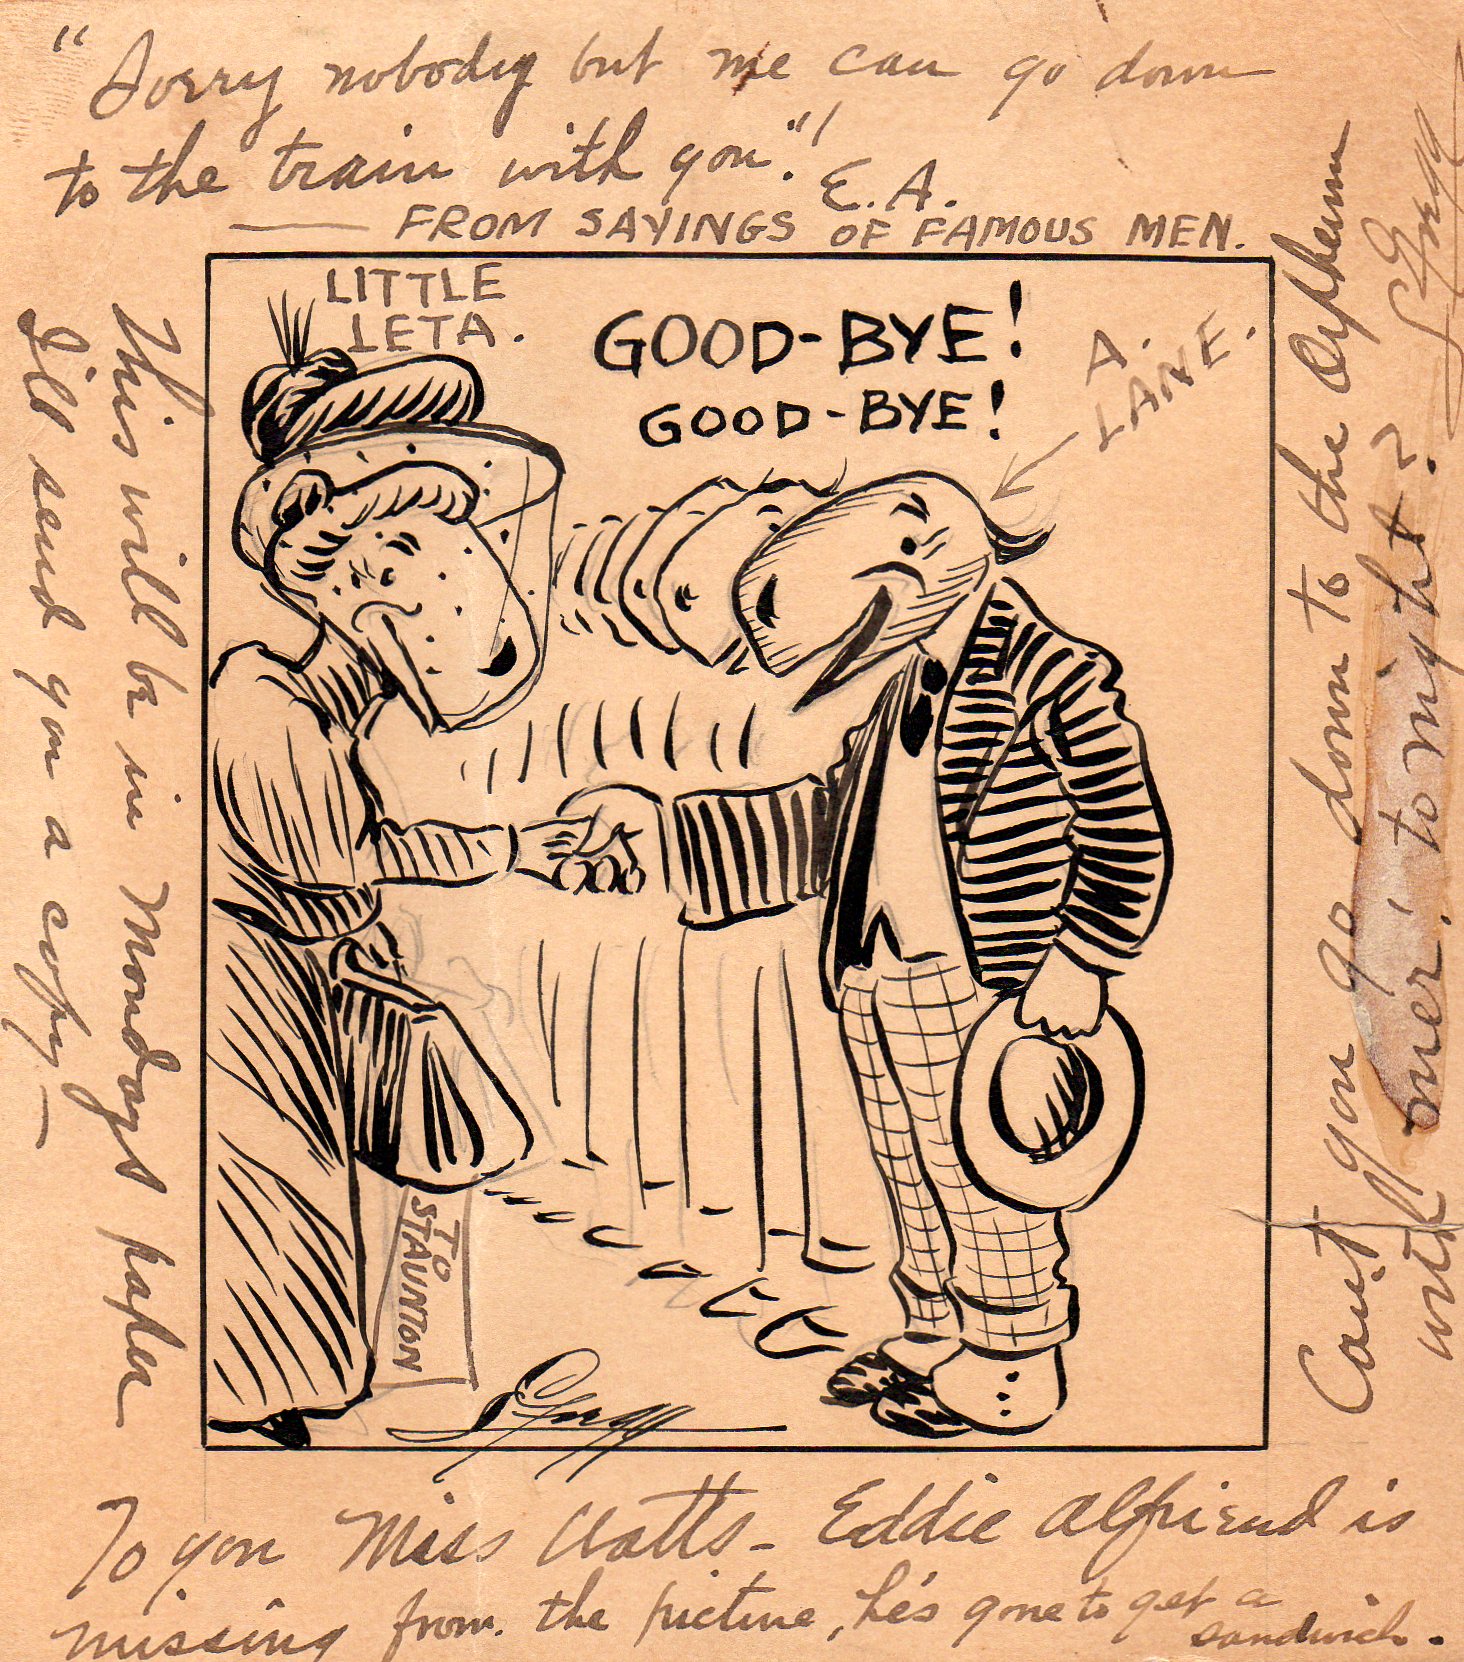 "Sorry nobody but me can go down
to the train with you."!
E. A.
— FROM SAYINGS OF FAMOUS MEN.
LITTLE
LETA.
GOOD-BYE!
GOOD-BYE!
A.
LANE.
TO
STAUNTON
This will be in Mondays paper
I'll send you a copy —
Can't you go down to the Orpheum
with to night?
To you Miss Watts - Eddie Alfriend is
missing from. the picture, he's gone to get a
sandwich.